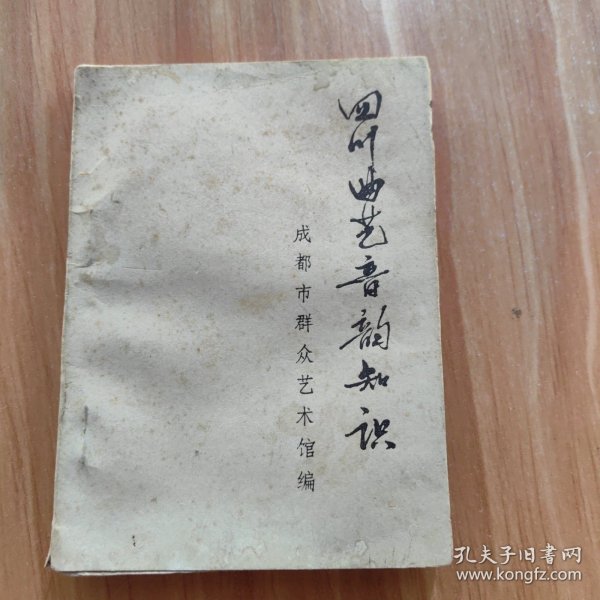 四川曲艺音韵知识
成都市群众艺术馆编
孔夫子旧书网
www.kongfz.com